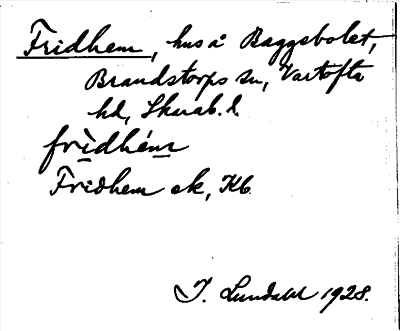 Fridhem, hus å Baggebolet,
Brandstorps sn, Vartofta
hd, Skarab. l.
frìdhém
Fridhem ek, Kb
I. Lundahl 1928.